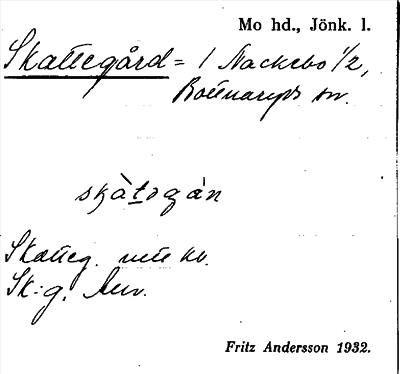 Mo hd., Jönk. l.
Skattegård = 1 Nackebo 1/2,
Bottnaryds sn.
skàtogán
Skatteg. mtl kb.
Sk:g.
Fritz Andersson 1932.